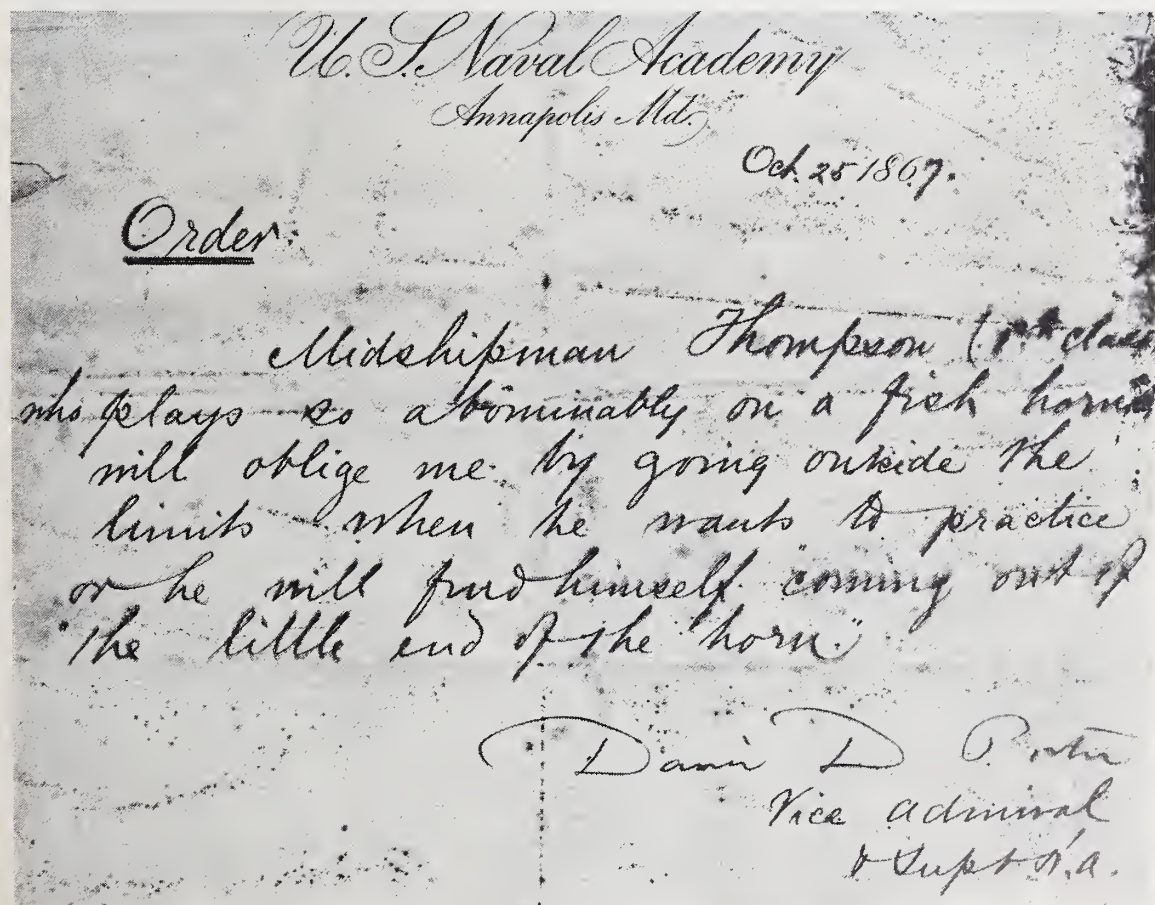 U.S. Naval Academy
Annapolis Md.
Oct. 25 1867.
Order.
Midshipman Thompson (1st class
who plays so abominably on a fish horn
will oblige me by going outside the
limits when he wants to practice
or he will find himself coming out of
"the little end of the horn."
David D Porter
Vice Admiral
& Supt N.A.